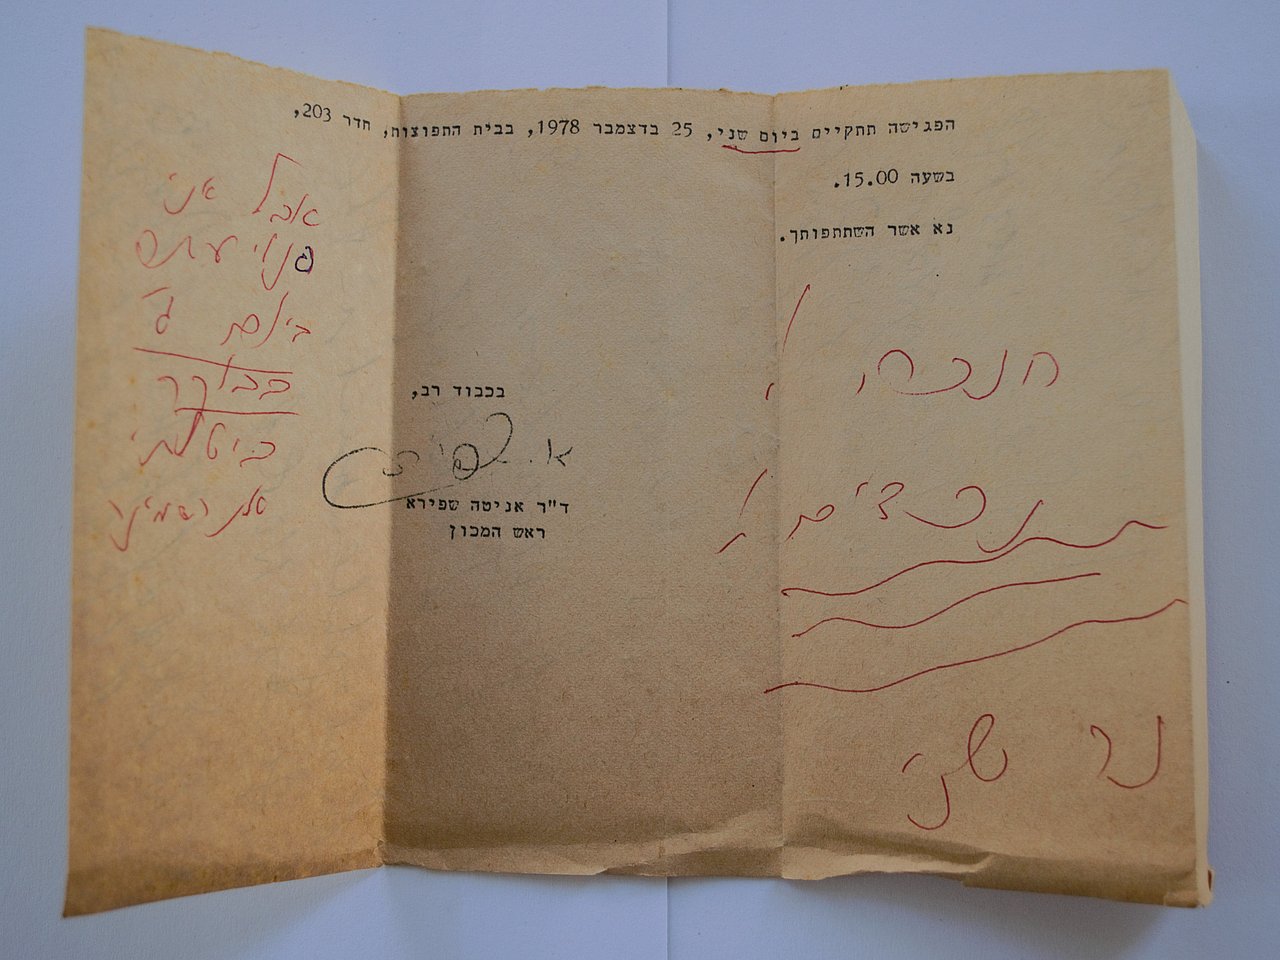 הפגישה תתקיים ביום שני, 25 בדצמבר 1978, בבית התפוצות, חדר 203,
בשעה 15.00.
נא אשר השתתפותך.
חנכה
נכדים
נר שני
בכבוד רב,
א. שפירא
ד"ר אניטה שפירא
ראש המכון
אבל אני
פנוי
ביום ג'
בבוקר
ביטלתי
את